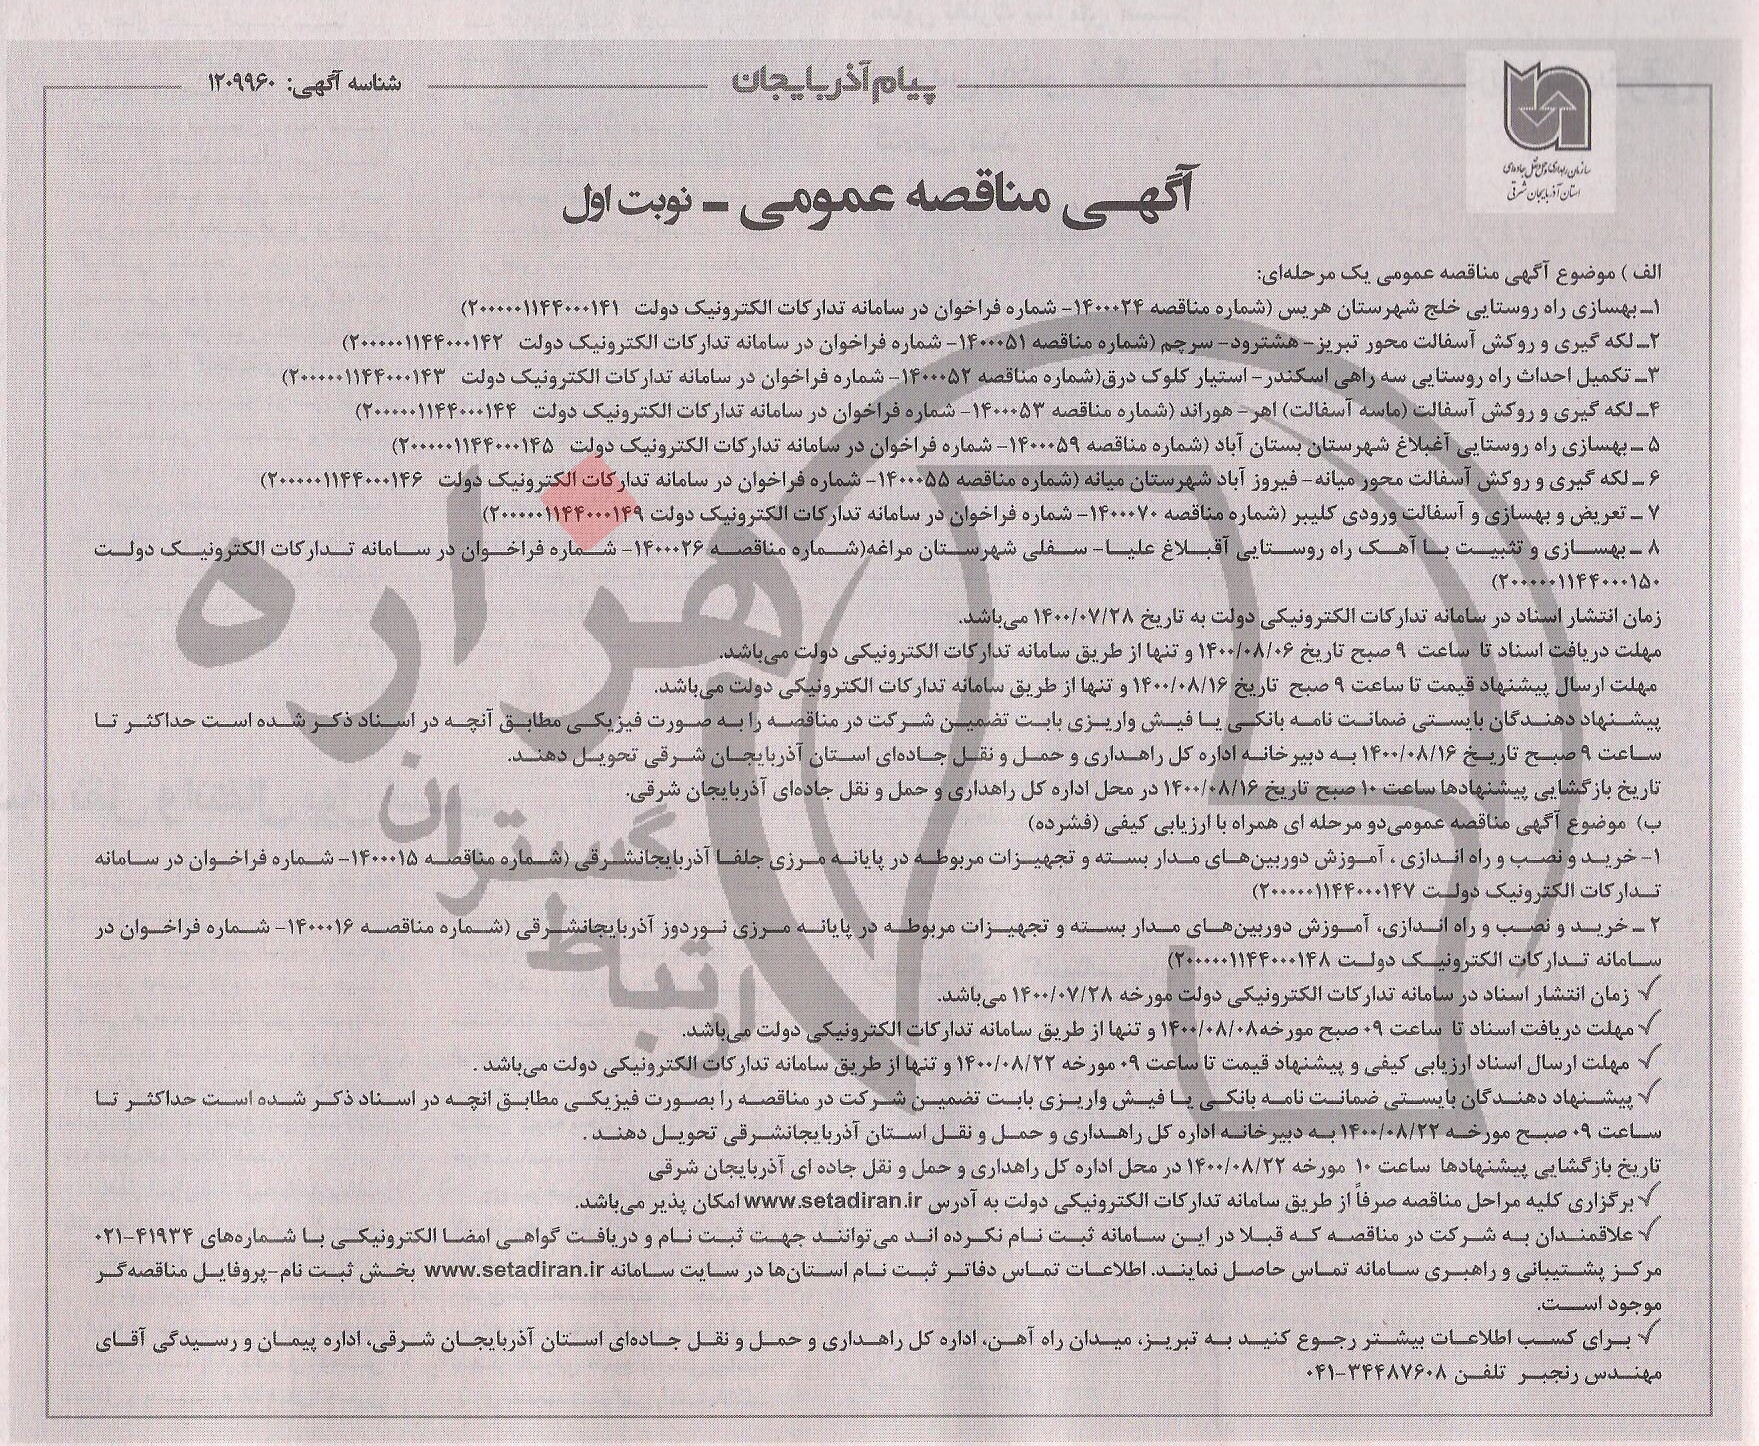 شناسه آگهی: ۱۲۰۹۹۶۰
پیام آذربایجان
سازمان راهداری و حمل و نقل جاده‌ای
استان آذربایجان شرقی
آگهـی مناقصه عمومی ـ نوبت اول
الف ) موضوع آگهی مناقصه عمومی یک مرحله‌ای:
۱ـ بهسازی راه روستایی خلج شهرستان هریس (شماره مناقصه ۱۴۰۰۰۲۴- شماره فراخوان در سامانه تدارکات الکترونیک دولت ۲۰۰۰۰۰۱۱۴۴۰۰۰۱۴۱)
۲ـ لکه گیری و روکش آسفالت محور تبریز- هشترود- سرچم (شماره مناقصه ۱۴۰۰۰۵۱- شماره فراخوان در سامانه تدارکات الکترونیک دولت ۲۰۰۰۰۰۱۱۴۴۰۰۰۱۴۲)
۳ـ تکمیل احداث راه روستایی سه راهی اسکندر- استیار کلوک درق(شماره مناقصه ۱۴۰۰۰۵۲- شماره فراخوان در سامانه تدارکات الکترونیک دولت ۲۰۰۰۰۰۱۱۴۴۰۰۰۱۴۳)
۴ـ لکه گیری و روکش آسفالت (ماسه آسفالت) اهر- هوراند (شماره مناقصه ۱۴۰۰۰۵۳- شماره فراخوان در سامانه تدارکات الکترونیک دولت ۲۰۰۰۰۰۱۱۴۴۰۰۰۱۴۴)
۵ ـ بهسازی راه روستایی آغبلاغ شهرستان بستان آباد (شماره مناقصه ۱۴۰۰۰۵۹- شماره فراخوان در سامانه تدارکات الکترونیک دولت ۲۰۰۰۰۰۱۱۴۴۰۰۰۱۴۵)
۶ ـ لکه گیری و روکش آسفالت محور میانه- فیروز آباد شهرستان میانه (شماره مناقصه ۱۴۰۰۰۵۵- شماره فراخوان در سامانه تدارکات الکترونیک دولت ۲۰۰۰۰۰۱۱۴۴۰۰۰۱۴۶)
۷ ـ تعریض و بهسازی و آسفالت ورودی کلیبر (شماره مناقصه ۱۴۰۰۰۷۰- شماره فراخوان در سامانه تدارکات الکترونیک دولت ۲۰۰۰۰۰۱۱۴۴۰۰۰۱۴۹)
۸ ـ بهسـازی و تثبیـت بـا آهـک راه روسـتایی آقبـلاغ علیـا- سـفلی شهرسـتان مراغه(شـماره مناقصـه ۱۴۰۰۰۲۶- شـماره فراخـوان در سـامانه تـدارکات الکترونیـک دولـت
۲۰۰۰۰۰۱۱۴۴۰۰۰۱۵۰)
زمان انتشار اسناد در سامانه تدارکات الکترونیکی دولت به تاریخ ۱۴۰۰/۰۷/۲۸ می‌باشد.
مهلت دریافت اسناد تا ساعت ۹ صبح تاریخ ۱۴۰۰/۰۸/۰۶ و تنها از طریق سامانه تدارکات الکترونیکی دولت می‌باشد.
مهلت ارسال پیشنهاد قیمت تا ساعت ۹ صبح تاریخ ۱۴۰۰/۰۸/۱۶ و تنها از طریق سامانه تدارکات الکترونیکی دولت می‌باشد.
پیشـنهاد دهنـدگان بایسـتی ضمانـت نامه بانکـی یـا فیـش واریـزی بابـت تضمیـن شـرکت در مناقصـه را بـه صـورت فیزیکـی مطابـق آنچـه در اسـناد ذکـر شـده اسـت حداکثـر تـا
سـاعت ۹ صبـح تاریـخ ۱۴۰۰/۰۸/۱۶ بـه دبیرخانـه اداره کل راهـداری و حمـل و نقـل جاده‌ای اسـتان آذربایجـان شـرقی تحویـل دهنـد.
تاریخ بازگشایی پیشنهادها ساعت ۱۰ صبح تاریخ ۱۴۰۰/۰۸/۱۶ در محل اداره کل راهداری و حمل و نقل جاده‌ای آذربایجان شرقی.
ب) موضوع آگهی مناقصه عمومی‌دو مرحله ای همراه با ارزیابی کیفی (فشرده)
۱- خریـد و نصـب و راه انـدازی ، آمـوزش دوربین‌هـای مـدار بسـته و تجهیـزات مربوطـه در پایانـه مـرزی جلفـا آذربایجانشـرقی (شـماره مناقصـه ۱۴۰۰۰۱۵- شـماره فراخـوان در سـامانه
تـدارکات الکترونیـک دولـت ۲۰۰۰۰۰۱۱۴۴۰۰۰۱۴۷)
۲ ـ خریـد و نصـب و راه انـدازی، آمـوزش دوربین‌هـای مـدار بسـته و تجهیـزات مربوطـه در پایانـه مـرزی نـوردوز آذربایجانشـرقی (شـماره مناقصـه ۱۴۰۰۰۱۶- شـماره فراخـوان در
سـامانه تـدارکات الکترونیـک دولـت ۲۰۰۰۰۰۱۱۴۴۰۰۰۱۴۸)
✓ زمان انتشار اسناد در سامانه تدارکات الکترونیکی دولت مورخه ۱۴۰۰/۰۷/۲۸ می‌باشد.
✓ مهلت دریافت اسناد تا ساعت ۰۹ صبح مورخه۱۴۰۰/۰۸/۰۸ و تنها از طریق سامانه تدارکات الکترونیکی دولت می‌باشد.
✓ مهلت ارسال اسناد ارزیابی کیفی و پیشنهاد قیمت تا ساعت ۰۹ مورخه ۱۴۰۰/۰۸/۲۲ و تنها از طریق سامانه تدارکات الکترونیکی دولت می‌باشد .
✓ پیشـنهاد دهنـدگان بایسـتی ضمانـت نامه بانکـی یـا فیـش واریـزی بابـت تضمیـن شـرکت در مناقصـه را بصـورت فیزیکـی مطابـق انچـه در اسـناد ذکـر شـده اسـت حداکثـر تـا
سـاعت ۰۹ صبـح مورخـه ۱۴۰۰/۰۸/۲۲ بـه دبیرخانـه اداره کل راهـداری و حمـل و نقـل اسـتان آذربایجانشـرقی تحویـل دهنـد .
تاریخ بازگشایی پیشنهادها ساعت ۱۰ مورخه ۱۴۰۰/۰۸/۲۲ در محل اداره کل راهداری و حمل و نقل جاده ای آذربایجان شرقی
✓ برگزاری کلیه مراحل مناقصه صرفاً از طریق سامانه تدارکات الکترونیکی دولت به آدرس www.setadiran.ir امکان پذیر می‌باشد.
✓ علاقمنـدان بـه شـرکت در مناقصـه کـه قبـلا در ایـن سـامانه ثبـت نـام نکـرده انـد می‌تواننـد جهـت ثبـت نـام و دریافـت گواهـی امضـا الکترونیکـی بـا شـماره‌های ۴۱۹۳۴-۰۲۱
مرکـز پشـتیبانی و راهبـری سـامانه تمـاس حاصـل نماینـد. اطلاعـات تمـاس دفاتـر ثبـت نـام اسـتان‌ها در سـایت سـامانه www.setadiran.ir بخـش ثبـت نام-پروفایـل مناقصه‌گـر
موجود اسـت.
✓ بـرای کسـب اطلاعـات بیشـتر رجـوع کنیـد بـه تبریـز، میـدان راه آهـن، اداره کل راهـداری و حمـل و نقـل جاده‌ای اسـتان آذربایجـان شـرقی، اداره پیمـان و رسـیدگی آقـای
مهنـدس رنجبـر تلفـن ۳۴۴۸۷۶۰۸-۰۴۱
هزاره
گستران
ارتباط